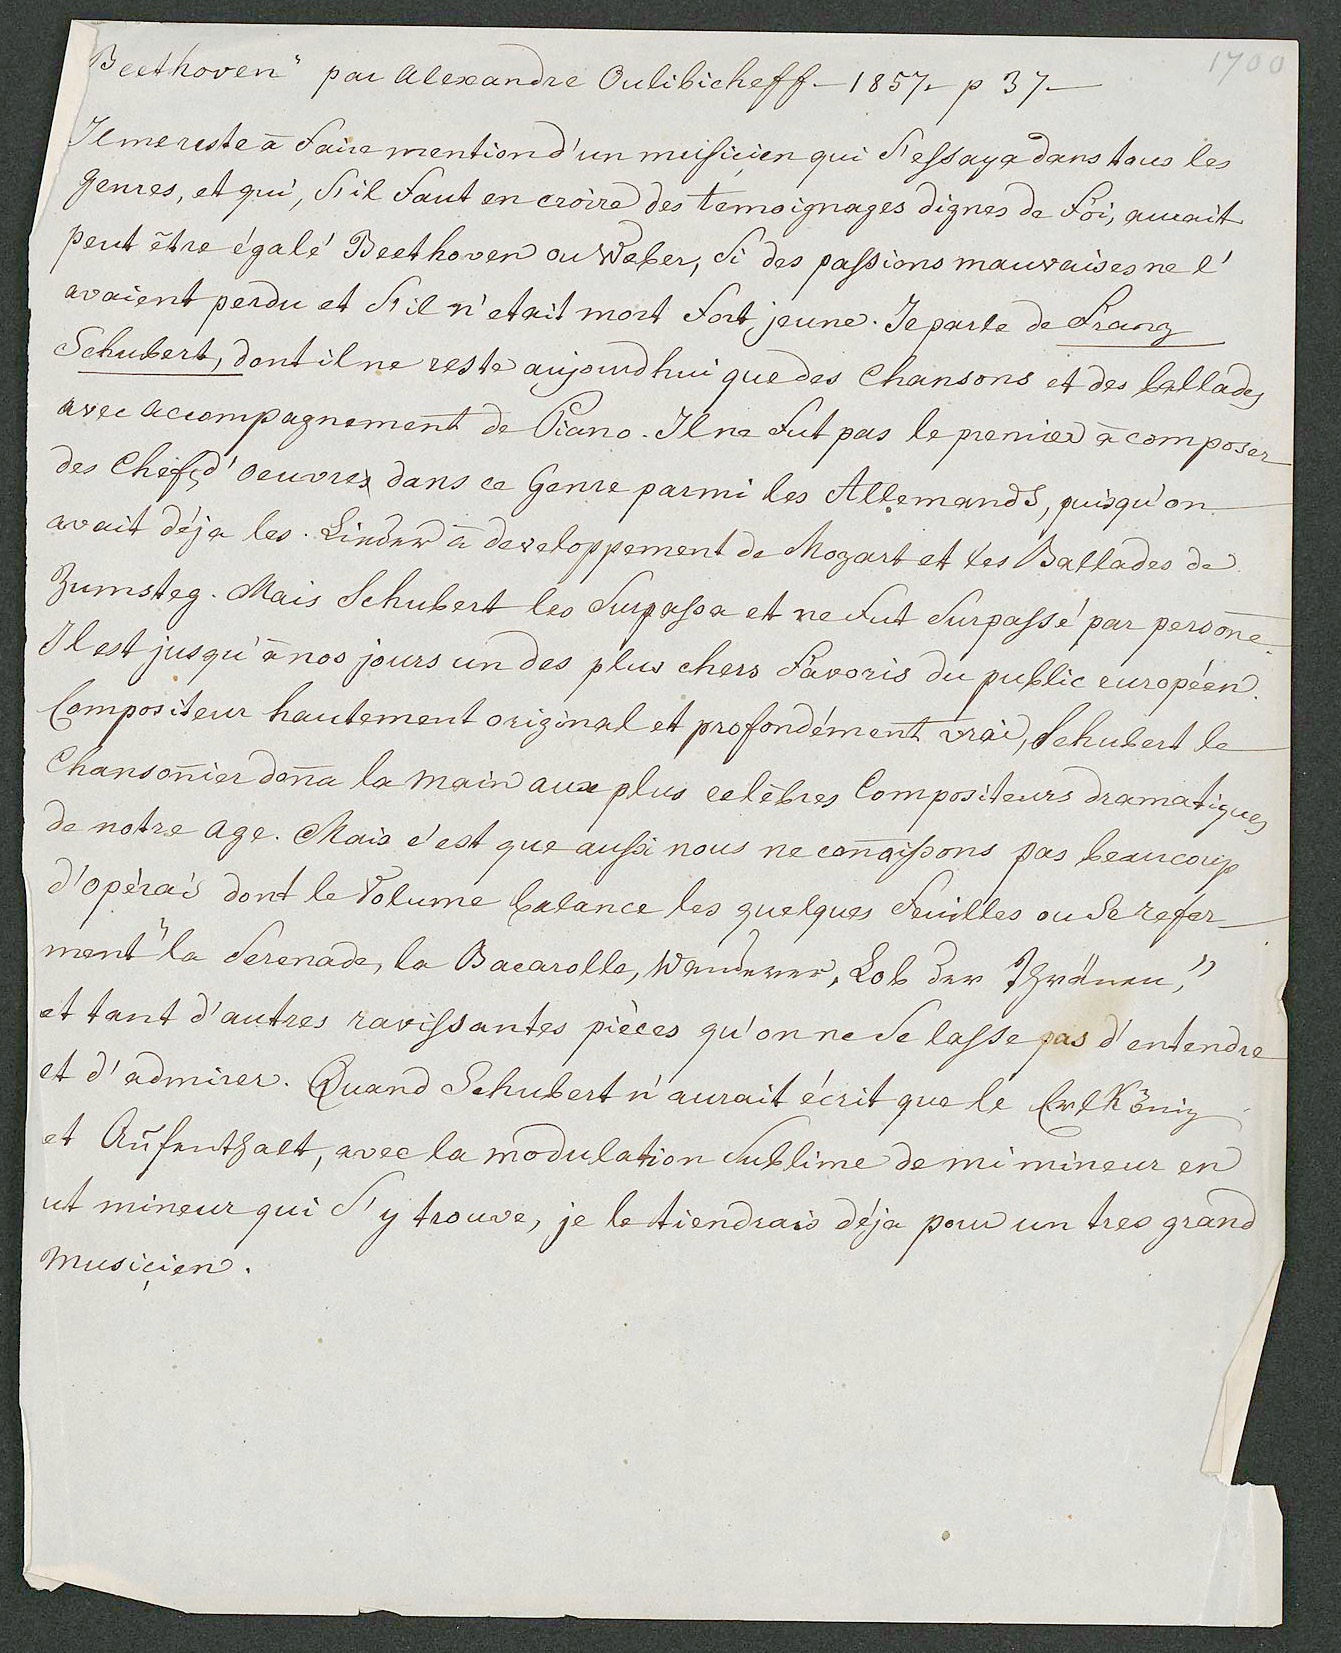 1700
Beethoven" par Alexandre Oulibicheff – 1857. p 37 –
Il me reste à faire mention d'un musicien qui s'essaya dans tous les
genres, et qui, s'il faut en croire des témoignages dignes de foi, aurait
peut être égalé Beethoven ou Weber, si des passions mauvaises ne l'
avaient perdu et s'il n'etait mort fort jeune. Je parle de Franz
Schubert, dont il ne reste aujourdhui que des Chansons et des ballades
avec accompagnement de Piano. Il ne fut pas le premier à composer
des Chefs d'oeuvres dans ce Genre parmi les Allemands, puisqu'on
avait déja les Lieder à developpement de Mozart et les Ballades de
Zumsteg. Mais Schubert les surpassa et ne fut surpassé par persone̅.
Il est jusqu'à nos jours un des plus chers favoris du public européen.
Compositeur hautement original et profondément vrai, Schubert le
Chanson̅ier don̅a la main aux plus celèbres Compositeurs dramatiques
de notre age. Mais c'est que aussi nous ne con̅aissons pas beaucoup
d'opéra's dont le Volume balance les quelques feuilles ou se refer-
ment "la Serenade, la Bacarolle, Wanderer, Lob der Thränen,"
et tant d'autres ravissantes pièces qu'on ne se lasse pas d'entendre
et d'admirer. Quand Schubert n'aurait écrit que le Erlkönig
et Aufenthalt, avec la modulation sublime de mi mineur en
ut mineur qui s'y trouve, je le tiendrais déja pour un tres grand
musicien.